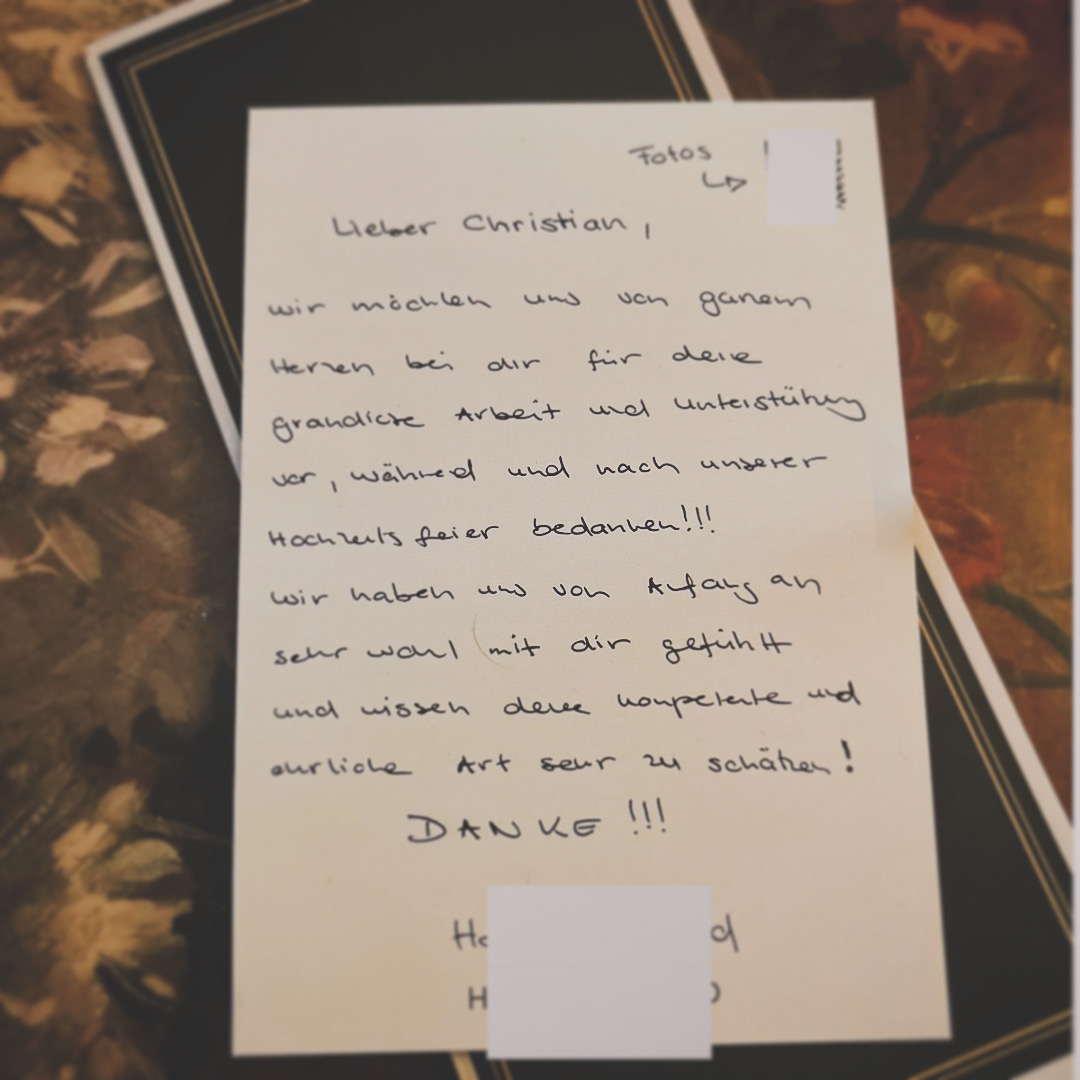 Fotos
Lieber Christian,
wir möchten uns von ganzem
Herzen bei dir für deine
grandiose Arbeit und Unterstützung
vor, während und nach unserer
Hochzeitsfeier bedanken!!!
Wir haben uns von Anfang an
sehr wohl mit dir gefühlt
und wissen deine kompetente und
ehrliche Art sehr zu schätzen!
DANKE !!!